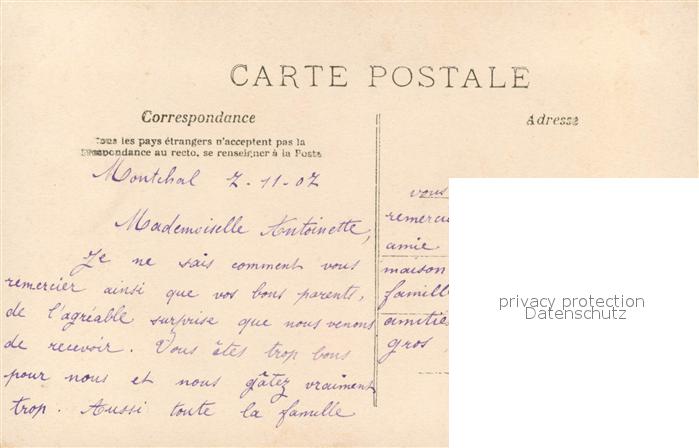 CARTE POSTALE
Correspondance
Tous les pays étrangers n'acceptent pas la
correspondance au recto, se renseigner à la Poste
Montchal 7-11-07
Mademoiselle Antoinette,
Je ne sais comment vous
remercier ainsi que vos bons parents,
de l'agréable surprise que nous venons
de recevoir. Vous êtes trop bons
pour nous et nous gâtez vraiment
trop. Aussi toute la famille
Adresse
vous
remercie
amie
maison
famille
amitiés
gros,
privacy protection
Datenschutz